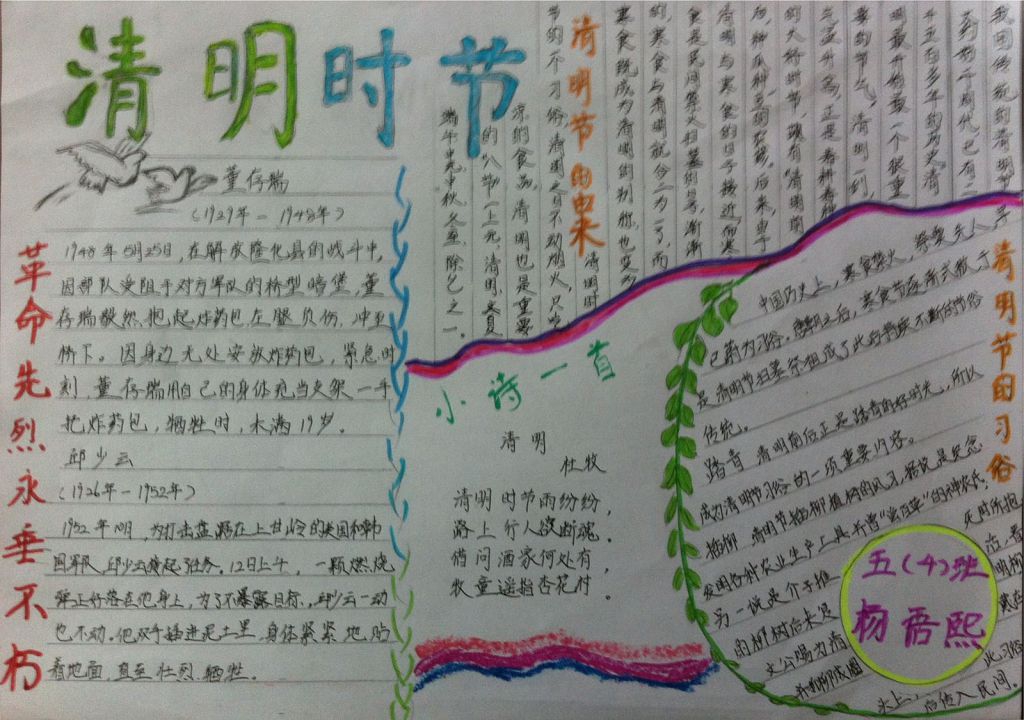 清明时节
董存瑞
(1929年－1948年)
1948年5月25日,在解放隆化县的战斗中,
因部队受阻于对方军队的桥型暗堡,董
存瑞毅然抱起炸药包,左腿负伤,冲至
桥下。因身边无处安放炸药包,紧急时
刻,董存瑞用自己的身体充当支架,一手
把炸药包,牺牲时,未满19岁。
邱少云
(1926年－1952年)
1952年10月,为打击盘踞在上甘岭的美国和韩
国军队,邱少云接起任务。12日上午,一颗燃烧
弹正好落在他身上,为了不暴露目标,邱少云一动
也不动。他双手插进泥土里,身体紧紧地贴
着地面,直至壮烈牺牲。
革命先烈永垂不朽
我国传统的清明节
大约始于周代,已有二
千五百多年的历史。清
明最开始是一个很重
要的节气,清明一到,
气温升高,正是春耕春种
的大好时节,故有“清明前
后,种瓜种豆”的农谚。后来,由于
清明与寒食的日子接近,而寒
食是民间禁火扫墓的日子,渐渐
的,寒食与清明就合二为一了,而
寒食既成为清明的别称,也变为
清明时
节的一个习俗,清明之日不动烟火,只吃
凉的食品。清明也是重要
的“八节”(上元、清明、立夏、
端午、中元、中秋、冬至、除夕)之一。
清明节的由来
小诗一首
清明
杜牧
清明时节雨纷纷,
路上行人欲断魂。
借问酒家何处有,
牧童遥指杏花付。
清明节的习俗
中国历史上,寒食禁火,祭奠先人,早
已蔚为习俗。唐朝之后,寒食节逐渐式微,于
是清明节扫墓祭祖成了此后持续不断的节俗
传统。
踏青 清明前后正是踏青的好时光,所以
成为清明节习俗的一项重要内容。
插柳 清明节插柳植树的风习,据说是纪念
发明各种农业生产工具并曾“尝百草”的神农氏。
另一说是介子推
死时所抱
的柳树后来
文公赐为清
明柳
此习俗
后传入民间。
五(4)班
杨语熙